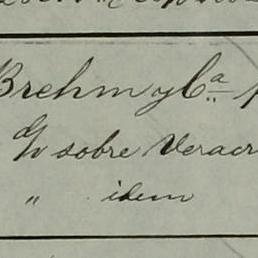 Brehm y Cª
sobre Veracr
" idem